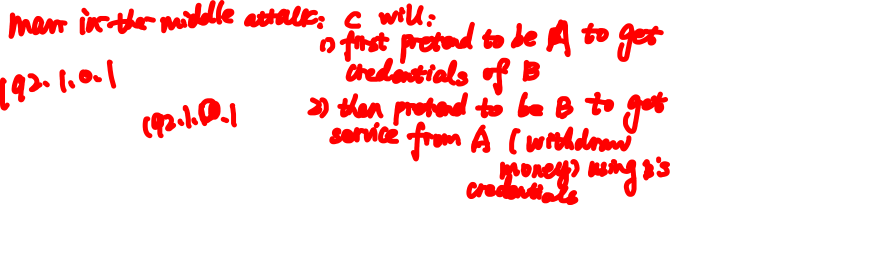 man in the middle attack: C will:
1) first pretend to be A to get
credentials of B
192.1.0.1
192.1.0.1
2) then pretend to be B to get
service from A (withdraw
money) using B's
credentials